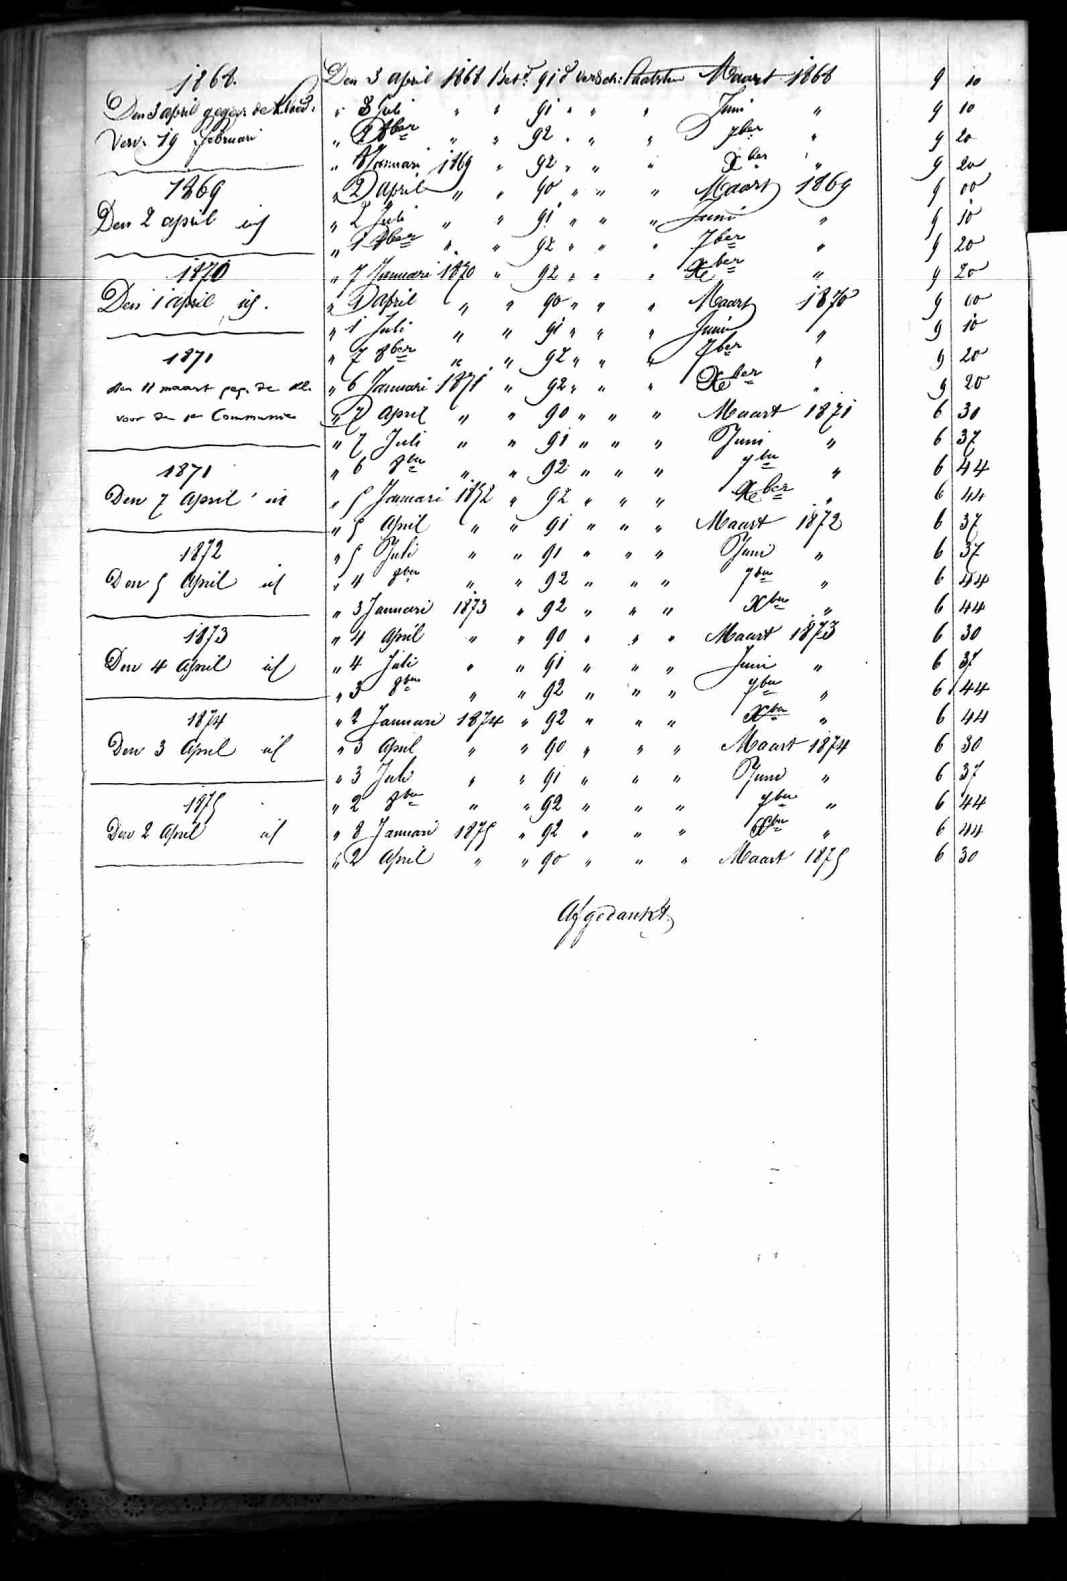 1868.
Den 3 april gegev. de Kleed.
Verv. 19 februari
1869
Den 2 april id
1870
Den 1 april id.
1871
den 11 maart geg. de kl.
voor de 1e Communie
1871
Den 7 April id
1872
Den 5 April id
1873
Den 4 April id
1874
Den 3 April id
1875
Den 2 April id
Den 3 april 1868 Bet.d 91 d versch: laatsten Maart 1868 9 10
" 3 Juli " " 91 " " " Juni " 9 10
" 2 8ber " " 92 " " " 7ber " 9 20
" 8 Januari 1869 " 92 " " " Xber " 9 20
" 2 april " " 90 " " " Maart 1869 9 00
" 2 Juli " " 91 " " " Juni " 9 10
" 1 8ber " " 92 " " " 7ber " 9 20
" 7 Januari 1870 " 92 " " " Xber " 9 20
" 1 april " " 90 " " " Maart 1870 9 00
" 1 Juli " " 91 " " " Juni " 9 10
" 7 8ber " " 92 " " " 7ber " 9 20
" 6 Januari 1871 " 92 " " " Xber " 9 20
" 7 April " " 90 " " " Maart 1871 6 30
" 7 Juli " " 91 " " " Juni " 6 37
" 6 8ber " " 92 " " " 7ber " 6 44
" 5 Januari 1872 " 92 " " " Xber " 6 44
" 5 April " " 91 " " " Maart 1872 6 37
" 5 Juli " " 91 " " " Juni " 6 37
" 4 8ber " " 92 " " " 7ber " 6 44
" 3 Januari 1873 " 92 " " " Xber " 6 44
" 4 April " " 90 " " " Maart 1873 6 30
" 4 Juli " " 91 " " " Juni " 6 37
" 3 8ber " " 92 " " " 7ber " 6 44
" 2 Januari 1874 " 92 " " " Xber " 6 44
" 3 April " " 90 " " " Maart 1874 6 30
" 3 Juli " " 91 " " " Juni " 6 37
" 2 8ber " " 92 " " " 7ber " 6 44
" 8 Januari 1875 " 92 " " " Xber " 6 44
" 2 April " " 90 " " " Maart 1875 6 30
Afgedankt